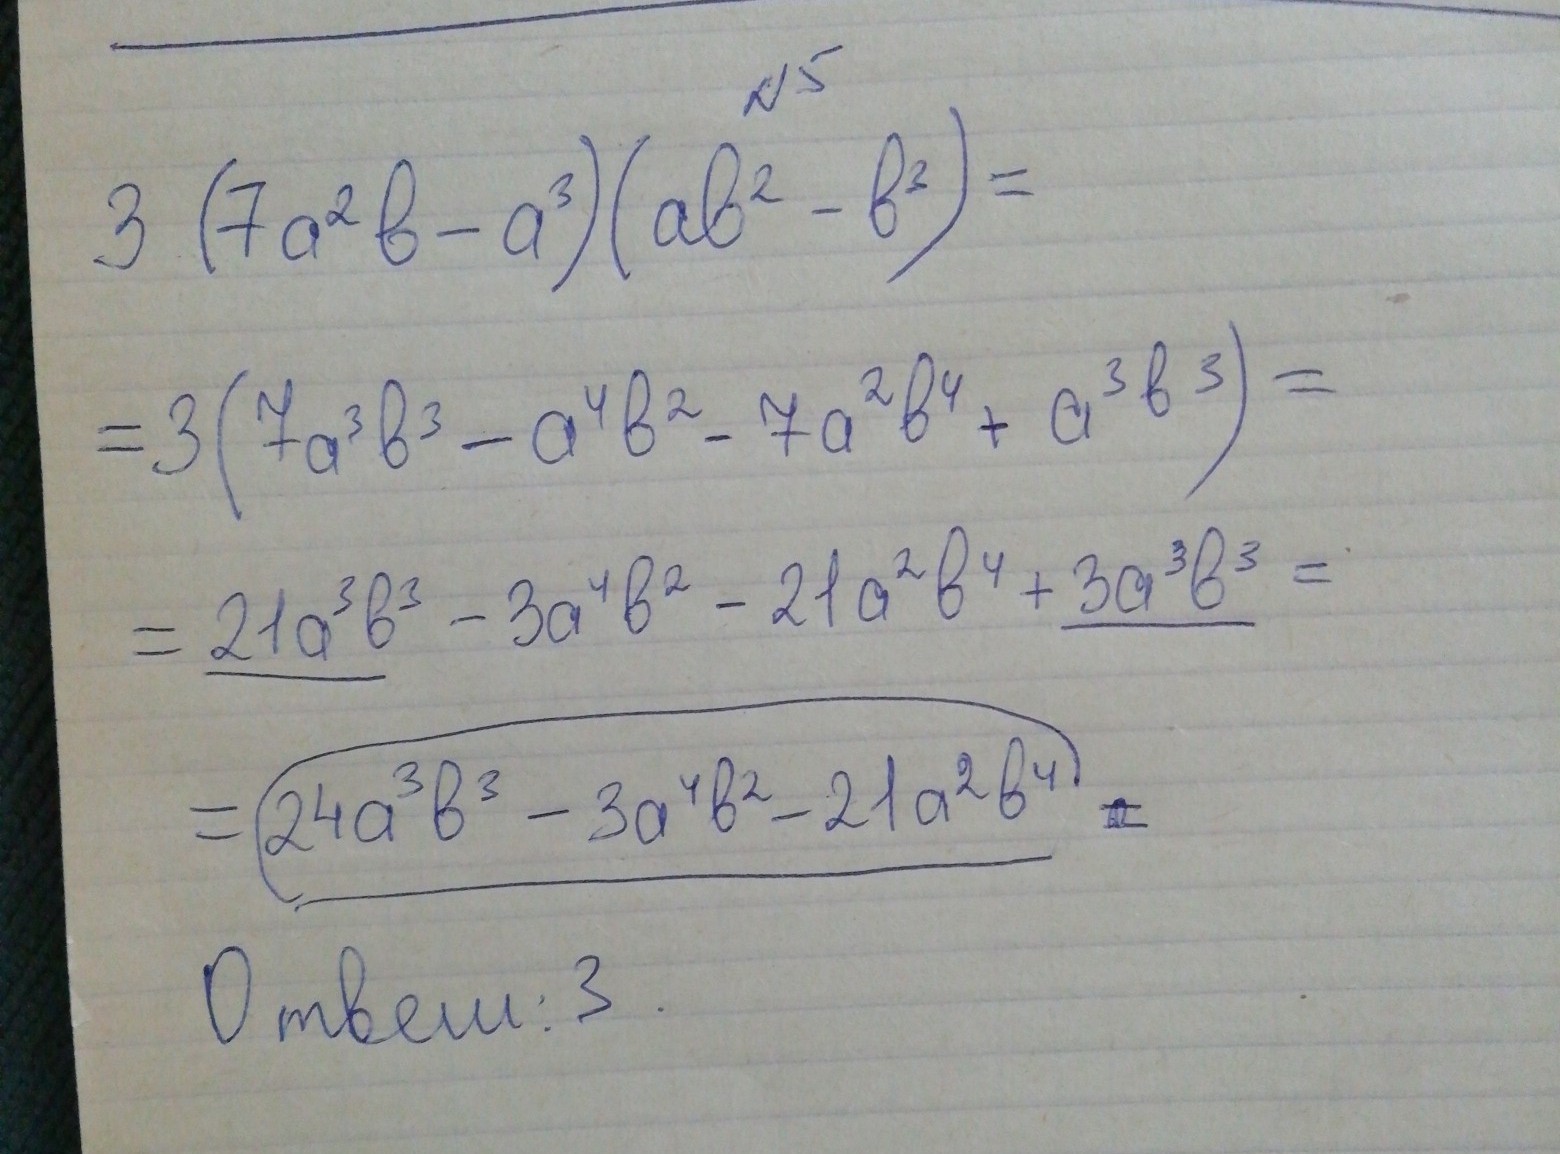 №5
3 (7a²b - a³)(ab² - b³) =
= 3(7a³b³ - a⁴b² - 7a²b⁴ + a³b³) =
= 21a³b³ - 3a⁴b² - 21a²b⁴ + 3a³b³ =
= 24a³b³ - 3a⁴b² - 21a²b⁴ =
Ответ: 3.